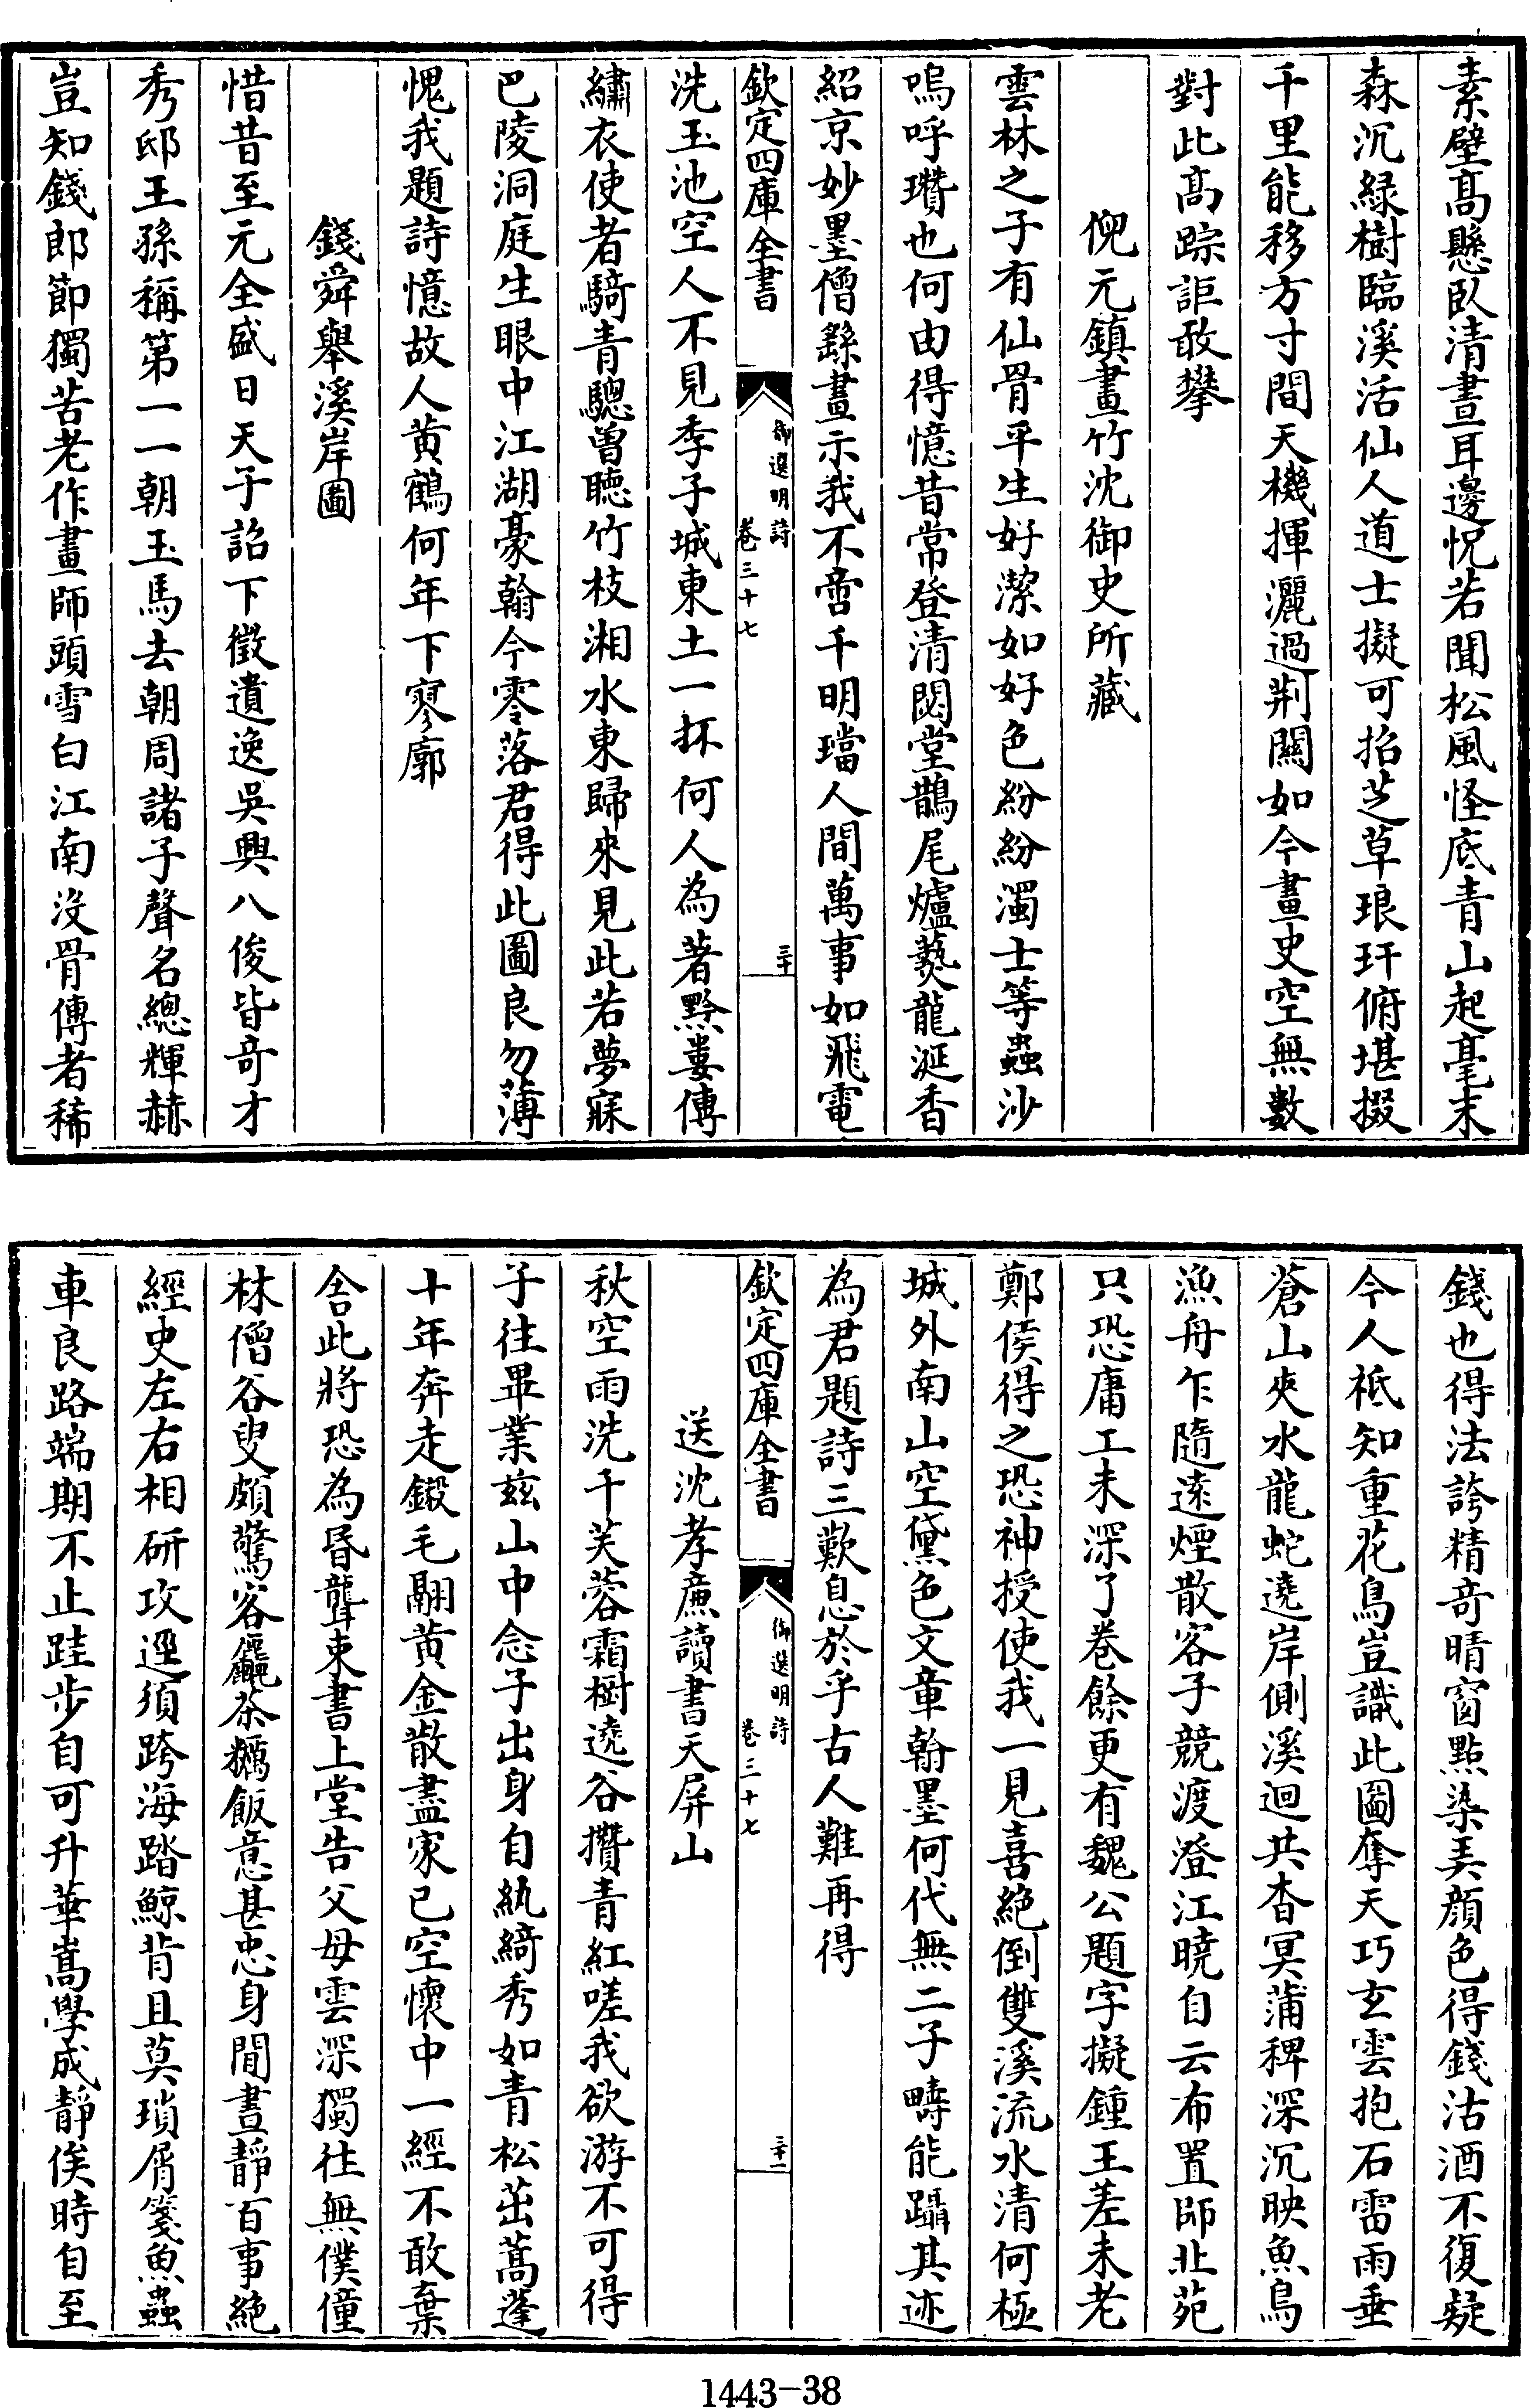 素壁髙懸臥清晝耳邊怳若聞松風怪底青山起毫末
森沉緑樹臨溪活仙人道士擬可招芝草琅玕俯堪掇
千里能移方寸間天機揮灑過荆闗如今畫史空無數
對此髙踪詎敢攀
倪元鎮畫竹沈御史所藏
雲林之子有仙骨平生好潔如好色紛紛濁士等蟲沙
嗚呼瓚也何由得憶昔常登清閟堂鵲尾爐爇龍涎香
紹京妙墨僧繇畫示我不啻千明璫人間萬事如飛電
欽定四庫全書
御選明詩
卷三十七
三十
洗玉池空人不見季子城東土一抔何人為著黔婁傳
繡衣使者騎青驄曽聴竹枝湘水東歸來見此若夢寐
巴陵洞庭生眼中江湖豪翰今零落君得此圖良勿薄
愧我題詩憶故人黄鶴何年下寥廓
錢舜舉溪岸圖
惜昔至元全盛日天子詔下徵遺逸吳興八俊皆竒才
秀邸王孫稱第一一朝玉馬去朝周諸子聲名總輝赫
豈知錢郎節獨苦老作畫師頭雪白江南沒骨傳者稀
錢也得法誇精竒晴窗點染美顔色得錢沽酒不復疑
今人祗知重花鳥豈識此圖奪天巧玄雲抱石雷雨垂
蒼山夾水龍蛇遶岸側溪迴共杳冥蒲稗深沉映魚鳥
漁舟乍隨逺煙散客子競渡澄江曉自云布置師北苑
只恐庸工未深了卷餘更有魏公題字擬鍾王差未老
鄭侯得之恐神授使我一見喜絶倒雙溪流水清何極
城外南山空黛色文章翰墨何代無二子疇能躡其迹
為君題詩三歎息於乎古人難再得
欽定四庫全書
御選明詩
卷三十七
三十一
送沈孝亷讀書天屏山
秋空雨洗千芙蓉霜樹遶谷攢青紅嗟我欲游不可得
子往畢業兹山中念子出身自紈綺秀如青松茁蒿蓬
十年奔走鍛毛翮黄金散盡家已空懷中一經不敢棄
舍此將恐為昬聾束書上堂告父母雲深獨往無僕僮
林僧谷叟頗驚客麤茶糲飯意甚忠身閒晝靜百事絶
經史左右相研攻逕須跨海踏鯨背且莫瑣屑箋魚蟲
車良路端期不止跬步自可升華嵩學成靜俟時自至
1443-38